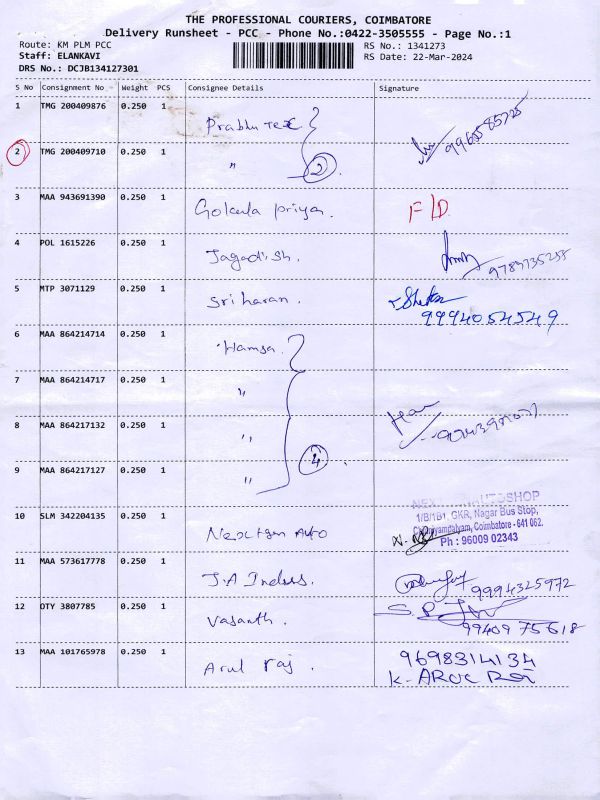 THE PROFESSIONAL COURIERS, COIMBATORE
Delivery Runsheet - PCC - Phone No.:0422-3505555 - Page No.:1
Route: KM PLM PCC
RS No.: 1341273
Staff: ELANKAVI
RS Date: 22-Mar-2024
DRS No.: DCJB134127301
S No Consignment No Weight PCS Consignee Details Signature
1 TMG 200409876 0.250 1 Prabhu Tex 9965585725
2 TMG 200409710 0.250 1 " 2
3 MAA 943691390 0.250 1 Gokula priya. F/D
4 POL 1615226 0.250 1 Jagadish. 9783735258
5 MTP 3071129 0.250 1 Sri haran.
9994054549
6 MAA 864214714 0.250 1 Hamsa.
7 MAA 864214717 0.250 1 "
8 MAA 864217132 0.250 1 "
9 MAA 864217127 0.250 1 " 4
10 SLM 342204135 0.250 1 Nextgen Auto
AUTOSHOP
1/B/1B1, GKR, Nagar Bus Stop,
Coimbatore - 641 062.
Ph : 96009 02343
11 MAA 573617778 0.250 1 J.A Indus. 9994325972
12 OTY 3807785 0.250 1 Vasanth.
99409 75618
13 MAA 101765978 0.250 1 Arul raj. 9698314134
K. ARUL